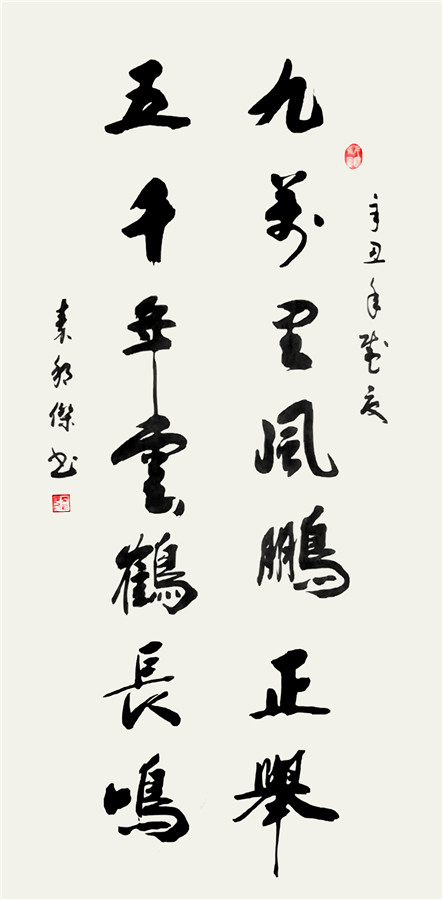 辛丑年盛夏
九萬里風鵬正舉
五千年雲鶴長鳴
袁傑书